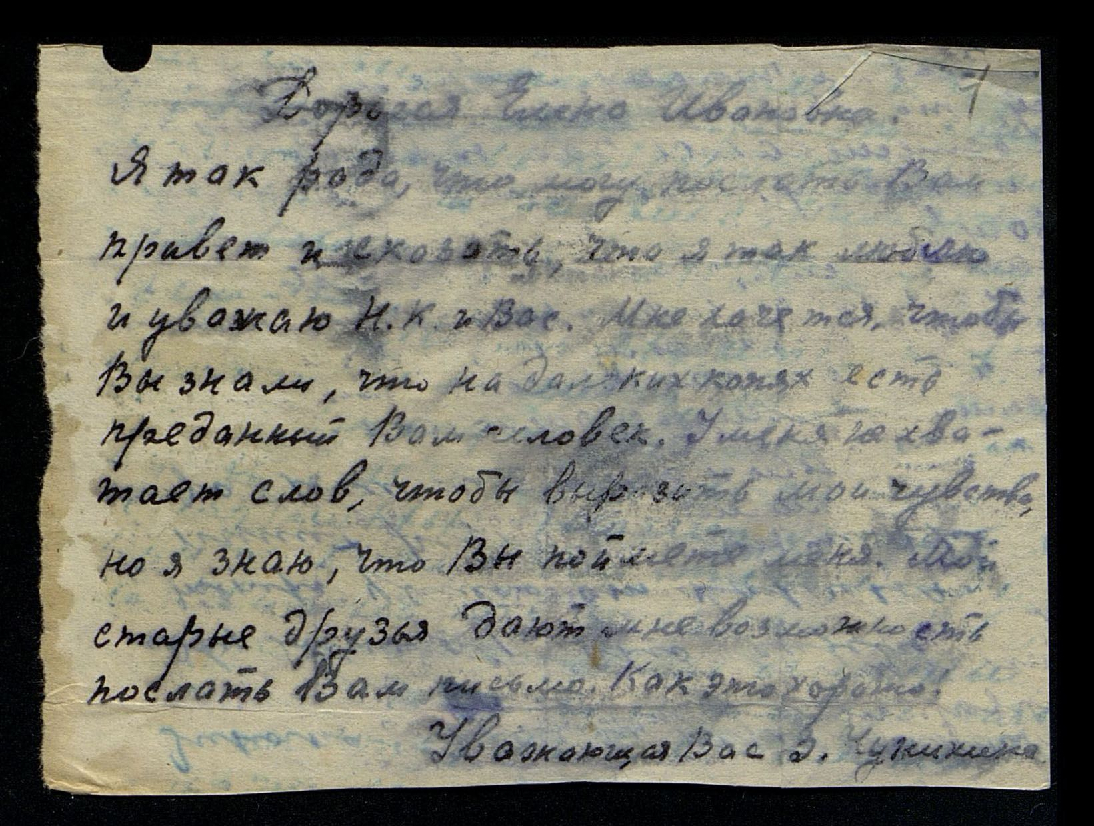 1
Дорогая Елена Ивановна.
Я так рада, что могу послать Вам
привет и сказать, что я так люблю
и уважаю Н.К. и Вас. Мне хочется, чтобы
Вы знали, что на далеких копях есть
преданный Вам человек. У меня не хва-
тает слов, чтобы выразить мои чувства,
но я знаю, что Вы поймете меня. Мои
старые друзья дают мне возможность
послать Вам письмо. Как это хорошо!
Уважающая Вас